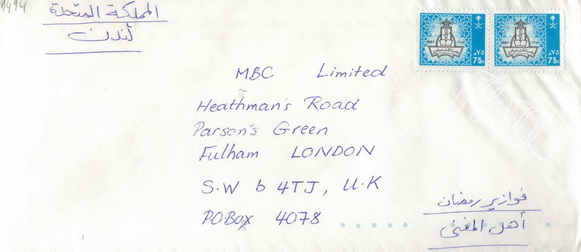 1494
المملكة المتحدة
لندن
٧٥
75
٧٥
75
MBC Limited
Heathman's Road
Parson's Green
Fulham LONDON
S.W 6 4TJ, U.K
POBox 4078
فوازير رمضان
أهل المغنى